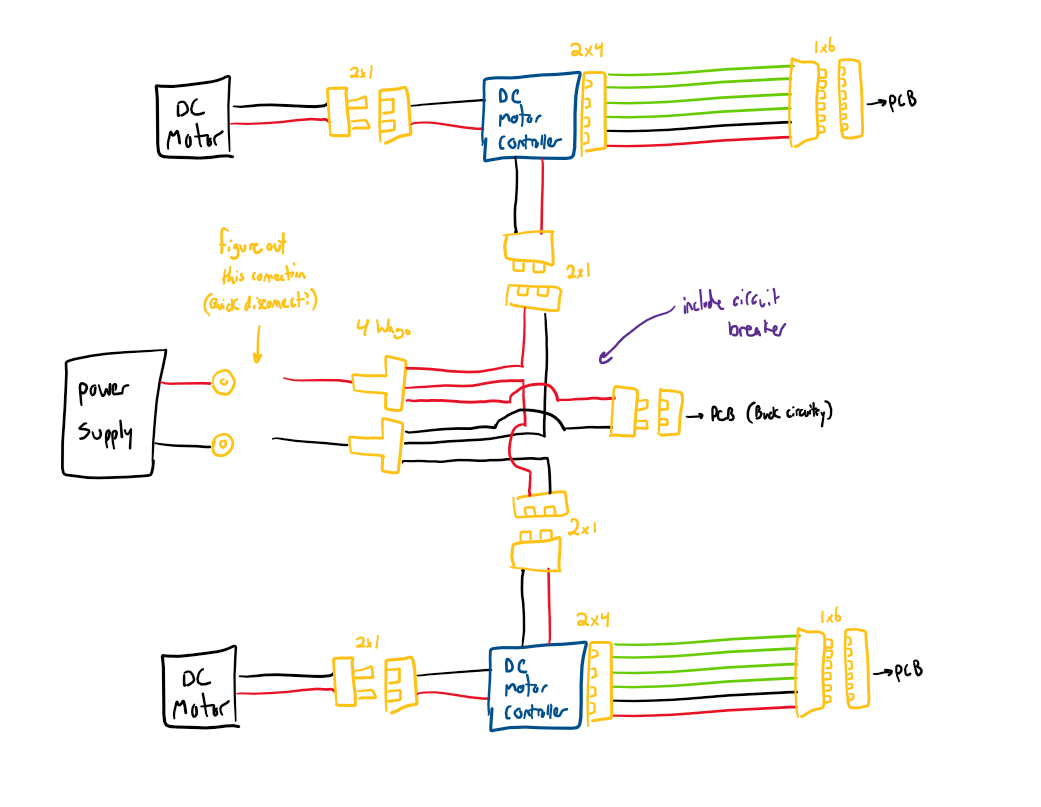 2x4
1x6
2x1
DC
Motor
DC
motor
controller
→PCB
figure out
this connection
(Quick disconnect?)
2x1
include circuit
breaker
4 Wago
power
Supply
→ PCB (Buck circuitry)
2x1
2x4
1x6
2x1
DC
Motor
DC
motor
controller
→PCB